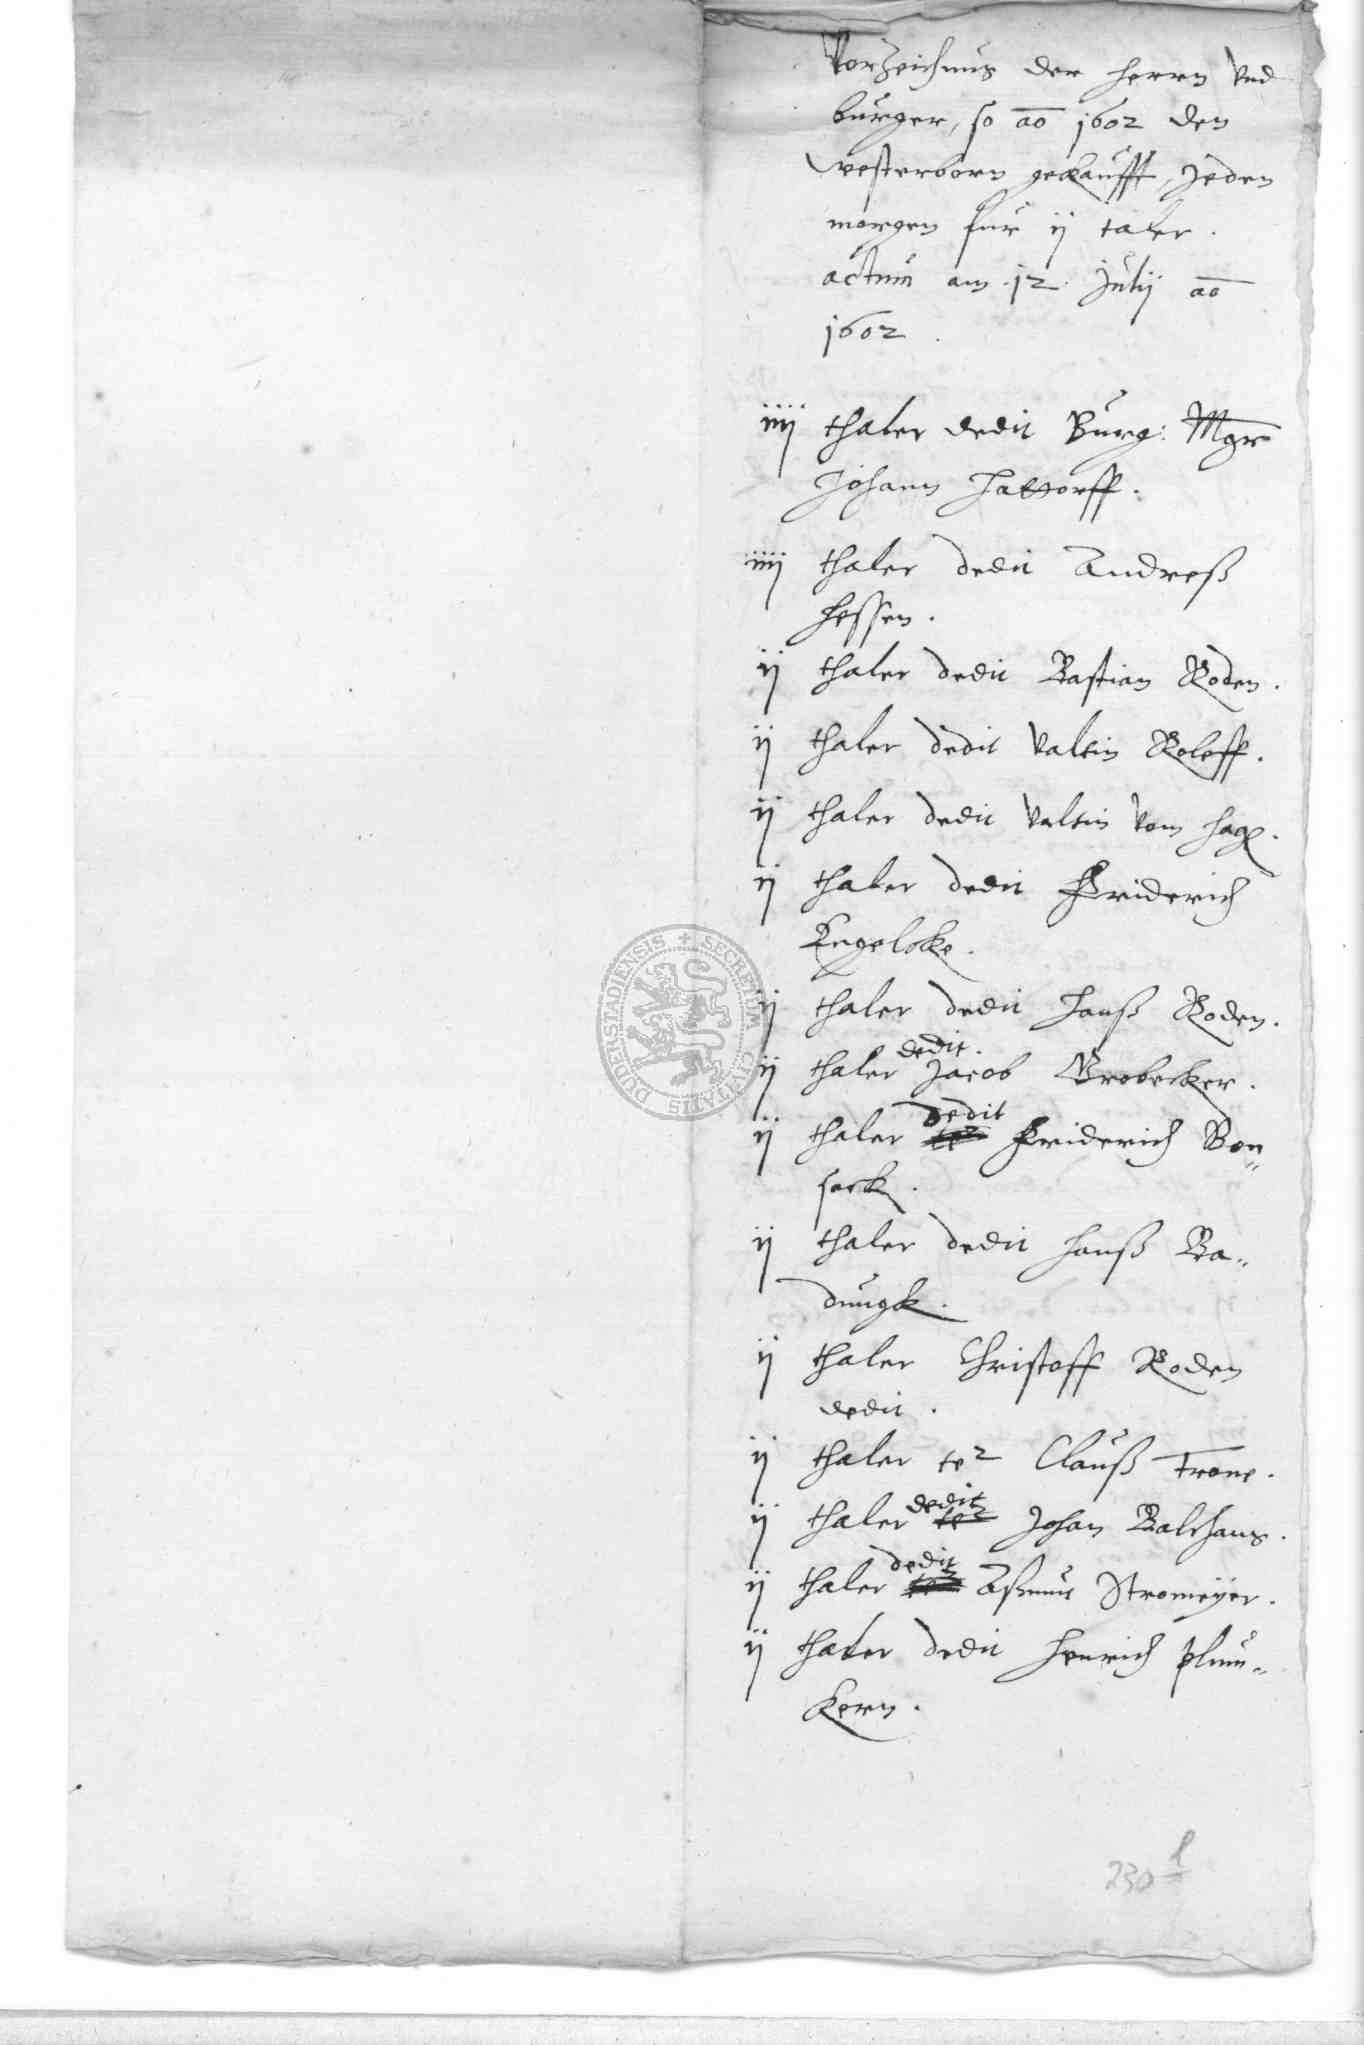 Vorzeichnus der herrn vnd
burger, so ao 1602 den
westerborn gekaufft, jeden
morgen fur ij taler.
actum am 12. Julij ao
1602.
iiij thaler dedit Burg: Mgr
Johann Hattorff.
iiij thaler dedit Andreß
Hessen.
ij thaler dedit Bastian Roden.
ij thaler dedit Valtin Roleff.
ij thaler dedit Valtin vom Hag.
ij thaler dedit Friderich
Engelke.
ij thaler dedit Hanß Roden.
ij thaler dedit Jacob Brobecker.
ij thaler dedit Friderich Bon„
sack.
ij thaler dedit Hanß Ba„
dungk.
ij thaler Christoff Roden
dedit.
ij thaler te2 Clauß Trone.
ij thaler dedit te2 Johan Balthaus.
ij thaler dedit Aßmus Stromeyer.
ij thaler dedit Henrich Plum„
kern.
230
SECRETUM CIVITATIS DUDERSTADIENSIS